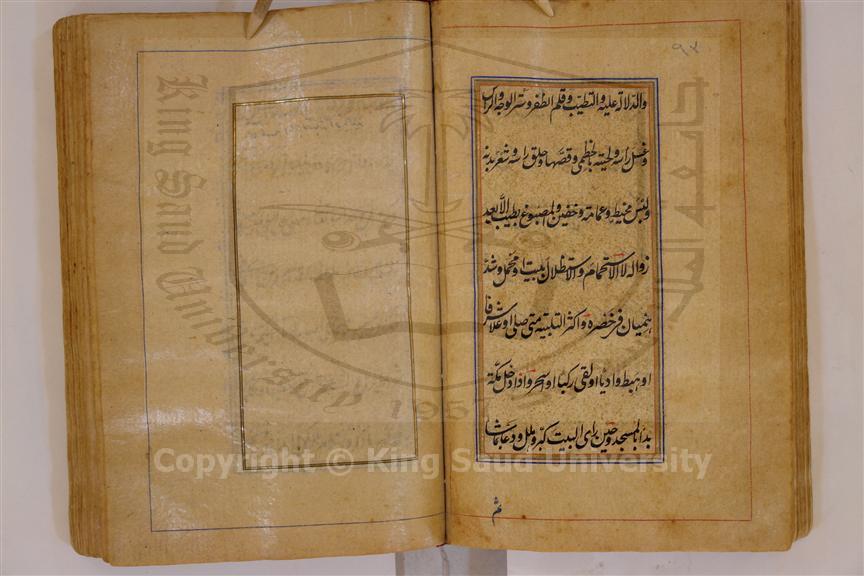 ٩٢
والدلالة عليه والتطيب وقلم الظفر وستر الوجه والراس
وغسل راسه ولحيته بالخطمى وقصها وحلق راسه وشعر بدنه
ولبس مخيط وعمامة وخفين والمصبوغ بطيب الا بعد
زواله لا الاستحمام والاستظلال ببيت ومحمل وشد
هميان فى خصره واكثر التلبية متى صلى او علا شرفا
او هبط واديا او لقى ركبا او اسحر واذا دخل مكة
بدا بالمسجد وحين راى البيت كبر وهلل ودعا بما شا
ثم
King Saud University
جامعة الملك
1957
Copyright © King Saud University